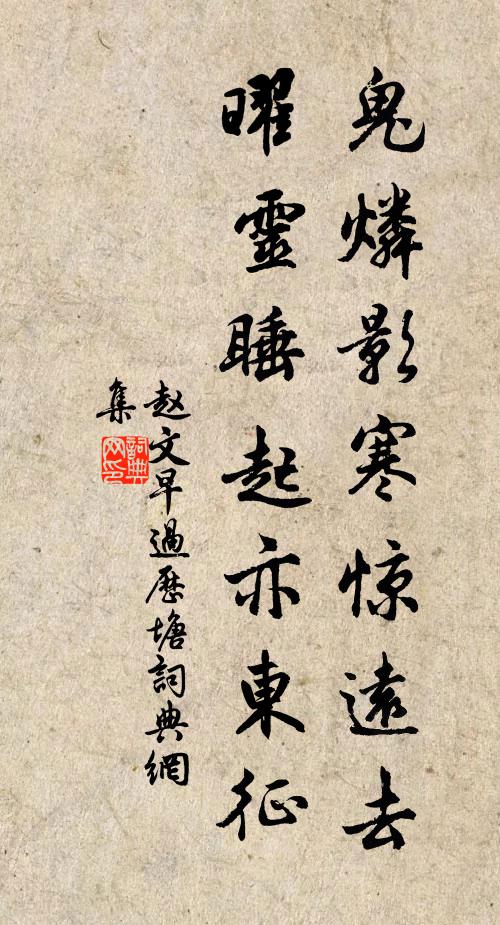 鬼燐影寒惊遠去
曜靈睡起亦東征
赵文早過歷塘詞典網
集
詞典
网印